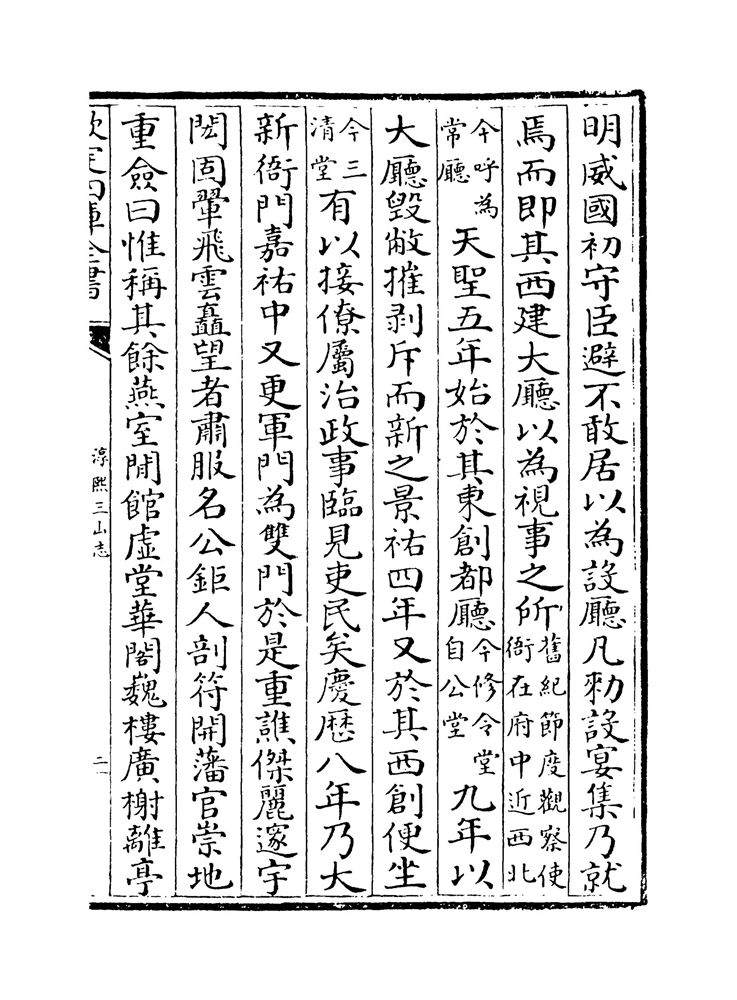 明威國初守臣避不敢居以為設廳凡勑設宴集乃就
焉而即其西建大廳以為視事之所舊紀節度觀察使衙在府中近西北
今呼為常廳天聖五年始於其東創都廳今修令堂自公堂九年以
大廳毀敝摧剥斥而新之景祐四年又於其西創便坐
今三清堂有以接僚屬治政事臨見吏民矣慶歴八年乃大
新衙門嘉祐中又更軍門為雙門於是重譙傑麗邃宇
閎固翬飛雲矗望者肅服名公鉅人剖符開藩官崇地
重僉曰惟稱其餘燕室閒館虛堂華閣巍樓廣榭離亭
欽定四庫全書
淳熙三山志
二